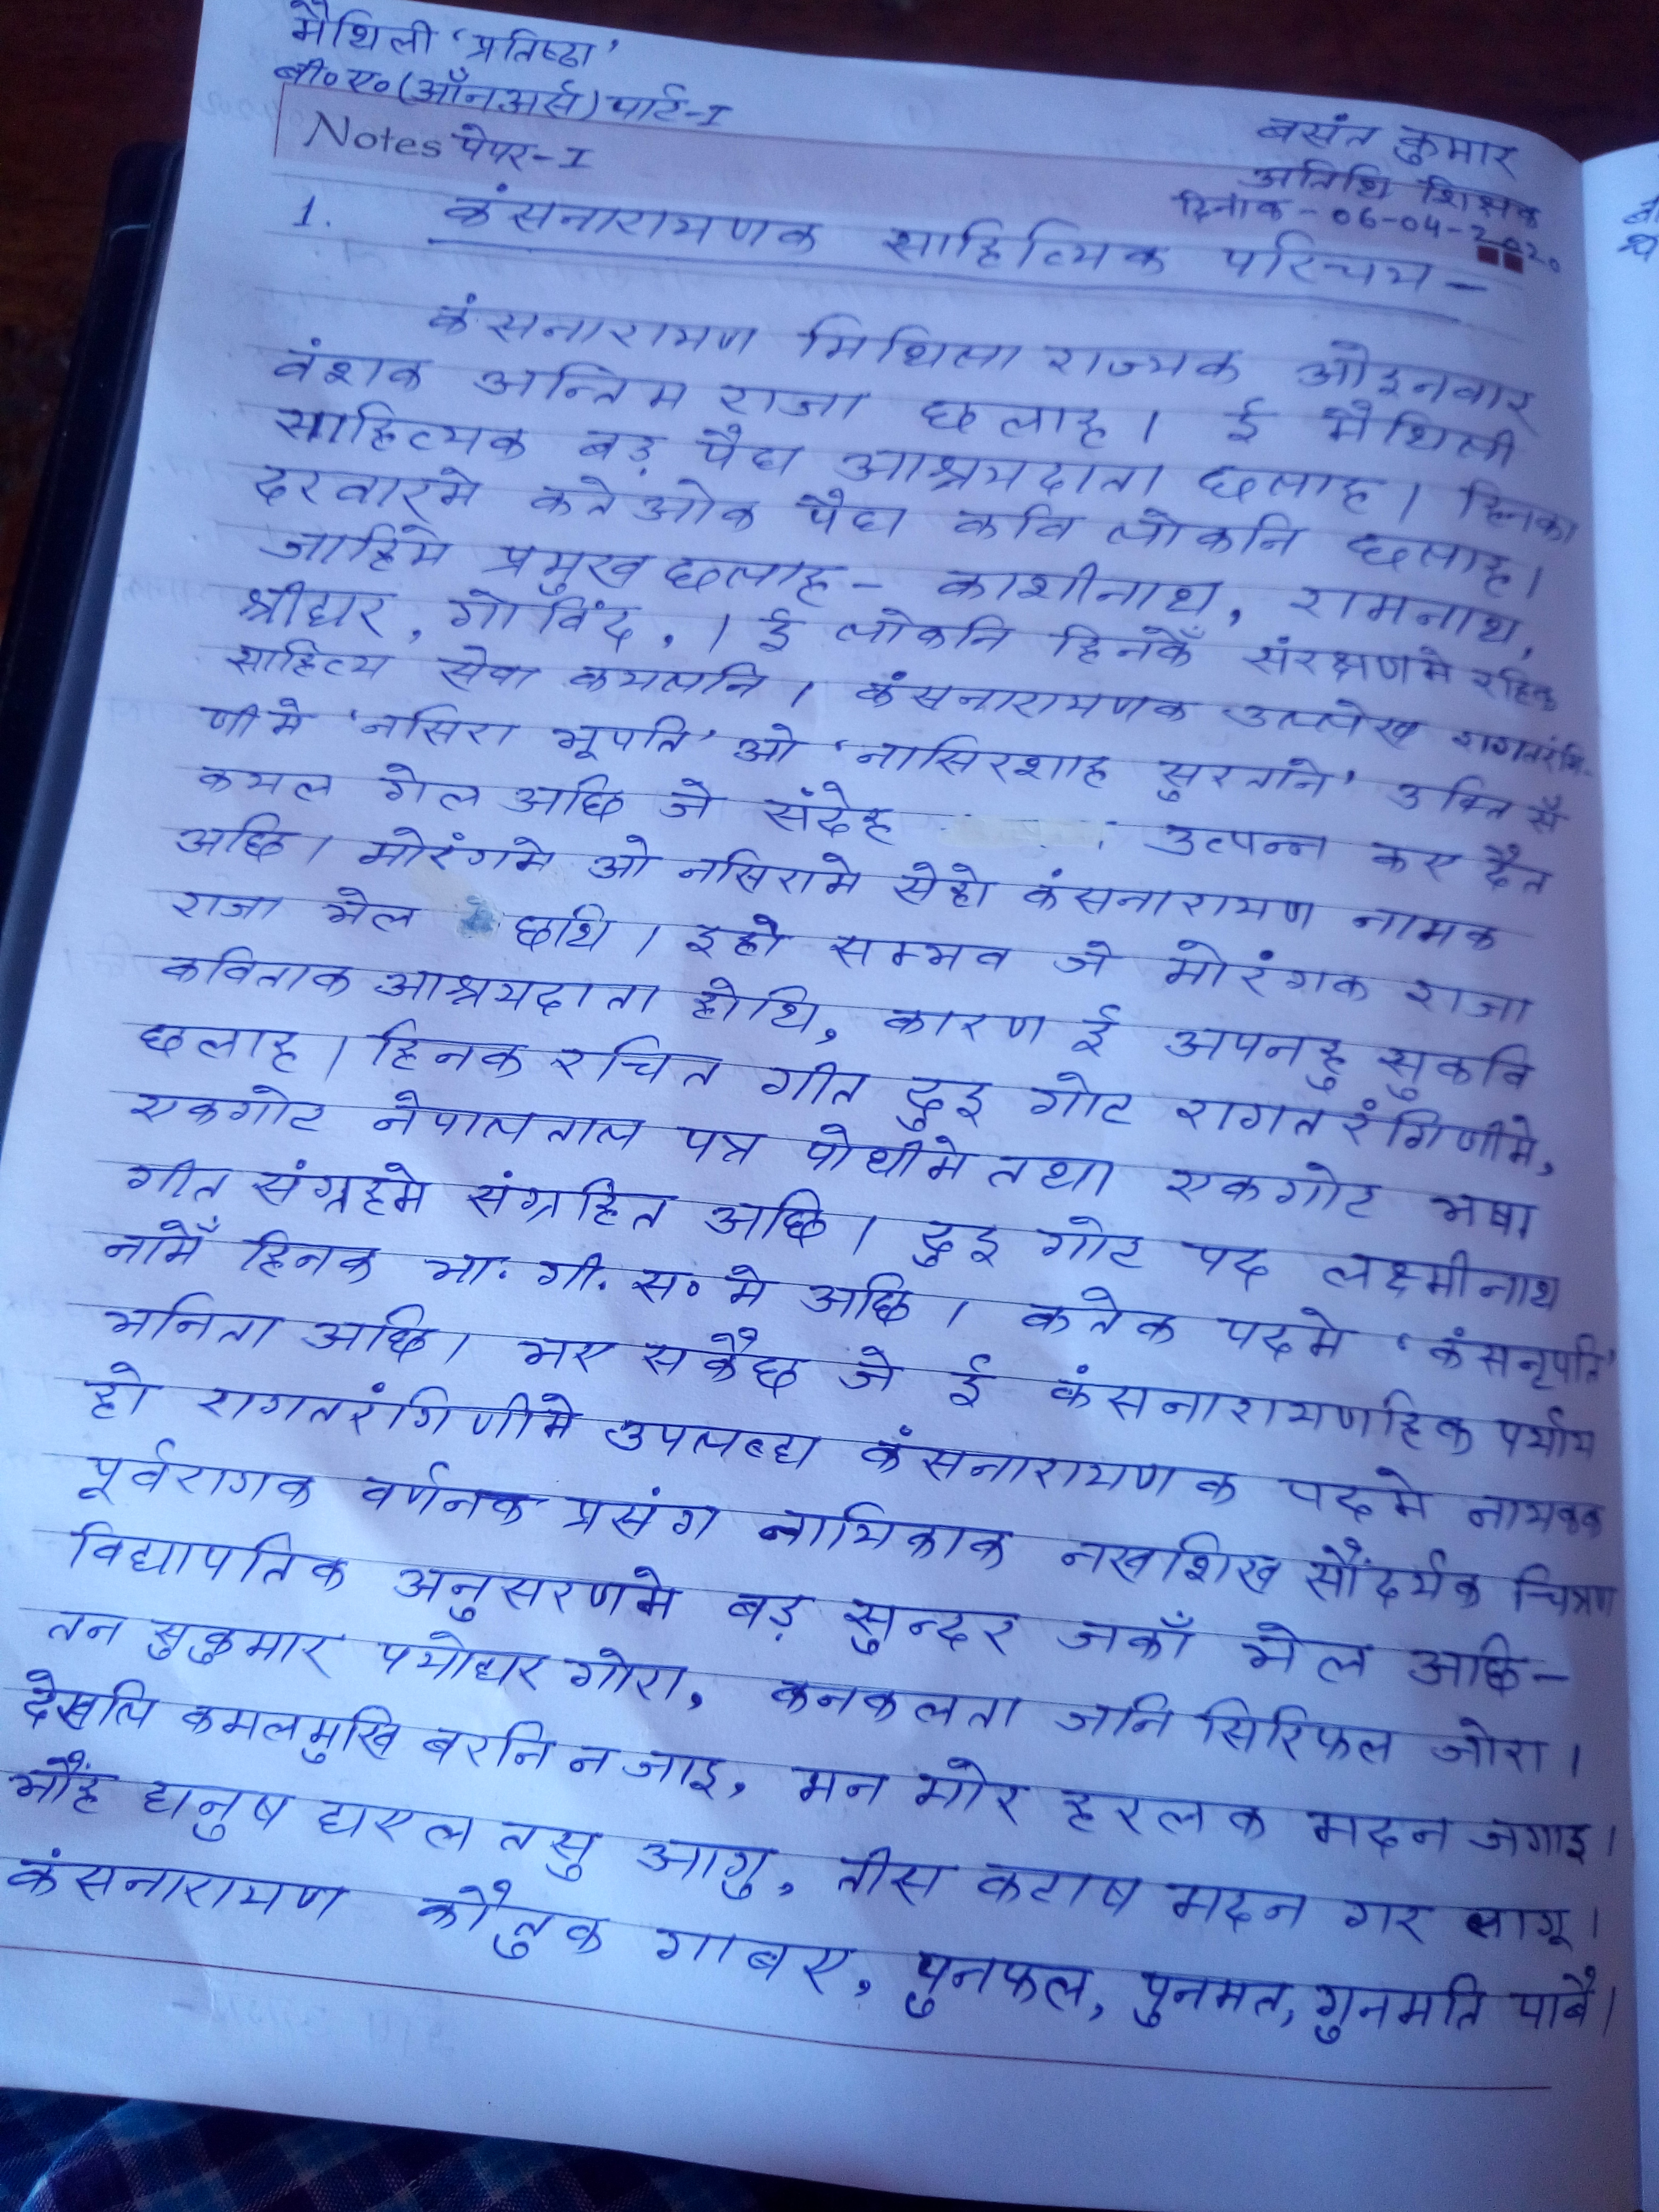 मैथिली 'प्रतिष्ठा'
बी०ए०(ऑनर्अस) पार्ट-I
Notes पेपर-I
बसंत कुमार
अतिथि शिक्षक
दिनांक - 06-04-2020
1. कंसनारायणक साहित्यिक परिचय -
कंसनारायण मिथिला राज्यक ओइनवार
वंशक अन्तिम राजा छलाह। ई मैथिली
साहित्यक बड़ पैघ आश्रयदाता छलाह। हिनका
दरवारमे कतेओक पैघ कवि लोकनि छलाह।
जाहिमे प्रमुख छलाह - काशीनाथ, रामनाथ,
श्रीधर, गोविंद, । ई लोकनि हिनकेँ संरक्षणमे रहिक
साहित्य सेवा कयलनि। कंसनारायणक उल्लेख रागतरंगि-
णीमे 'नसिरा भूपति' ओ 'नासिरशाह सुरताने' उक्ति सँ
कयल गेल अछि जे संदेह उत्पन्न कए दैत
अछि। मोरंगमे ओ नसिरामे सेहो कंसनारायण नामक
राजा भेल छथि। इहो सम्भव जे मोरंगक राजा
कविताक आश्रयदाता होथि, कारण ई अपनहु सुकवि
छलाह। हिनक रचित गीत दुइ गोट रागतरंगिणीमे,
एकगोट नेपाल ताल पत्र पोथीमे तथा एकगोट भषा
गीत संग्रहमे संग्रहित अछि। दुइ गोट पद लक्ष्मीनाथ
नामेँ हिनक भा. गी. स० मे अछि। कतेक पदमे 'कंसनृपति'
भनिता अछि। भए सकैछ जे ई कंसनारायणहिक पर्याय
हो रागतरंगिणीमे उपलब्ध कंसनारायणक पदमे नायकक
पूर्वरागक वर्णनक प्रसंग नायिकाक नखशिख सौंदर्यक चित्रण
विद्यापतिक अनुसरणमे बड़ सुन्दर जकाँ भेल अछि-
तन सुकुमार पयोधर गोरा, कनकलता जनि सिरिफल जोरा।
देखलि कमलमुखि बरनि न जाइ, मन मोर हरलक मदन जगाइ।
भौंह धनुष धएल तसु आगु, तीस कटाष मदन गर लागू।
कंसनारायण कौतुक गाबए, पुनफल, पुनमत, गुनमति पाबै।